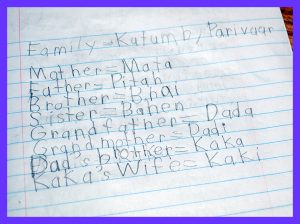 Family = Kutumb/Parivaar
Mother = Mata
Father = Pitah
Brother = Bhai
Sister = Bahen
Grandfather = Dada
Grandmother = Dadi
Dad's brother = Kaka
Kaka's Wife = Kaki